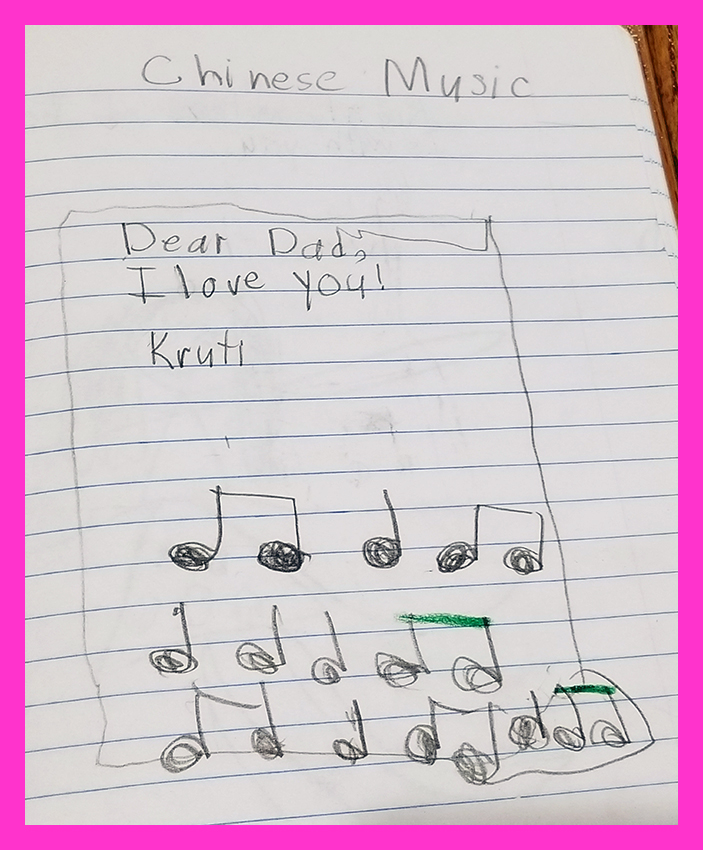 Chinese Music
Dear Dad,
I love you!
Kruti